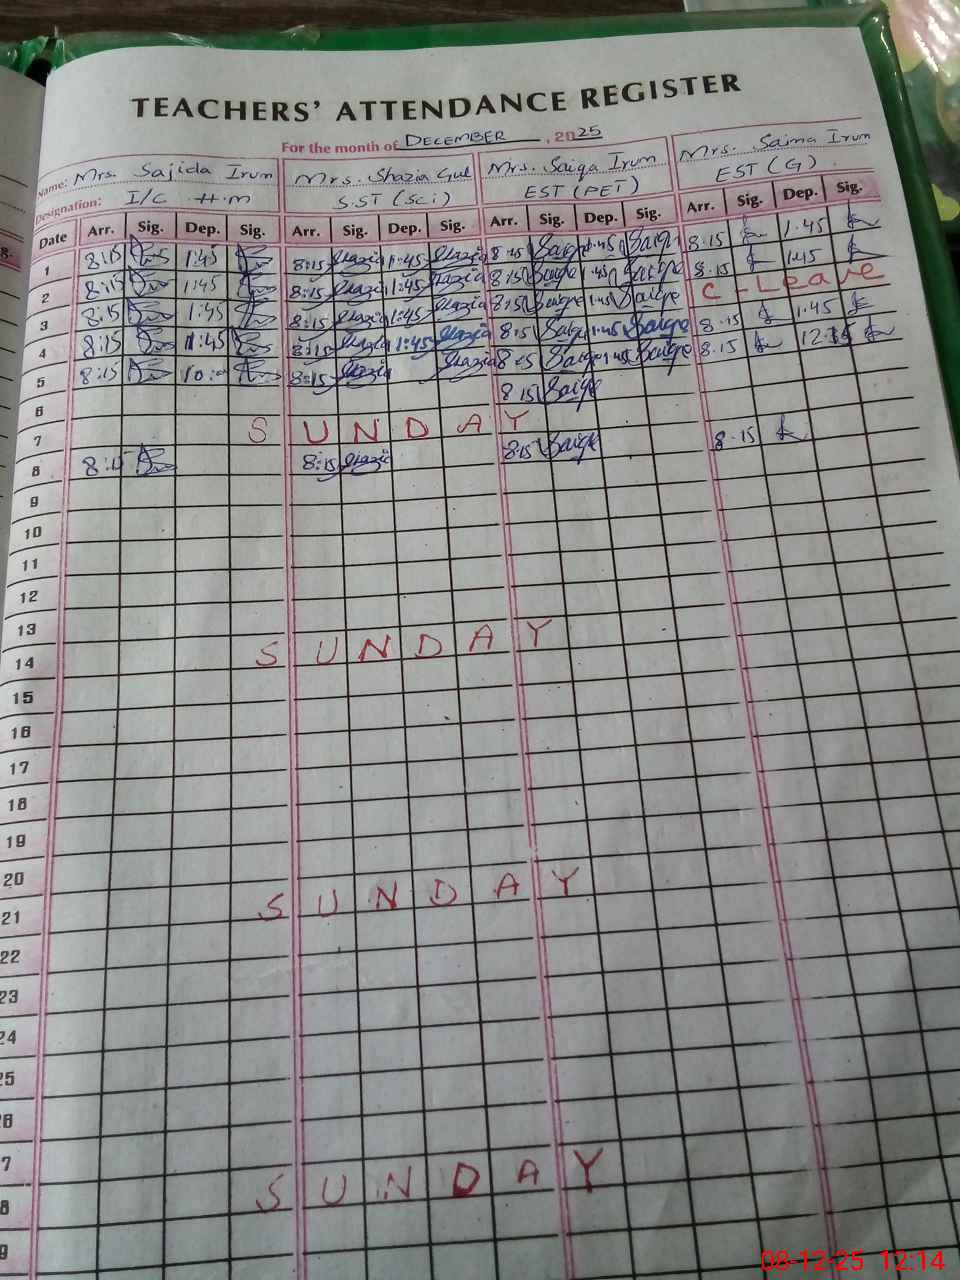 TEACHERS' ATTENDANCE REGISTER
For the month of DECEMBER, 2025
Name: Mrs. Sajida Irum Mrs. Shazia Gul Mrs. Saiqa Irum Mrs. Saima Irum
Designation: I/C H.M S.ST (Sci) EST (PET) EST (G)
Date Arr. Sig. Dep. Sig. Arr. Sig. Dep. Sig. Arr. Sig. Dep. Sig. Arr. Sig. Dep. Sig.
1 8:15 1:45 8:15 Shazia 1:45 Shazia 8:45 Saiqa 1:45 Saiqa 8.15 1.45
2 8:15 1:45 8:15 Shazia 1:45 Shazia 8:15 Saiqa 1:45 Saiqa 8.15 1.45
3 8:15 1:45 8:15 Shazia 1:45 Shazia 8:15 Saiqa 1:45 Saiqa C-Leave
4 8:15 1:45 8:15 Shazia 1:45 Shazia 8:15 Saiqa 1:45 Saiqa 8.15 1.45
5 8:15 10: 8:15 Shazia Shazia Saiqa 1:45 Saiqa 8.15
6 8:15 Saiqa
7 SUNDAY
8 8:15 8:15 Shazia 8:15 Saiqa 8.15
9
10
11
12
13
14 SUNDAY
15
16
17
18
19
20
21 SUNDAY
22
23
24
25
26
7
8 SUNDAY
9
08-12-25 12:14